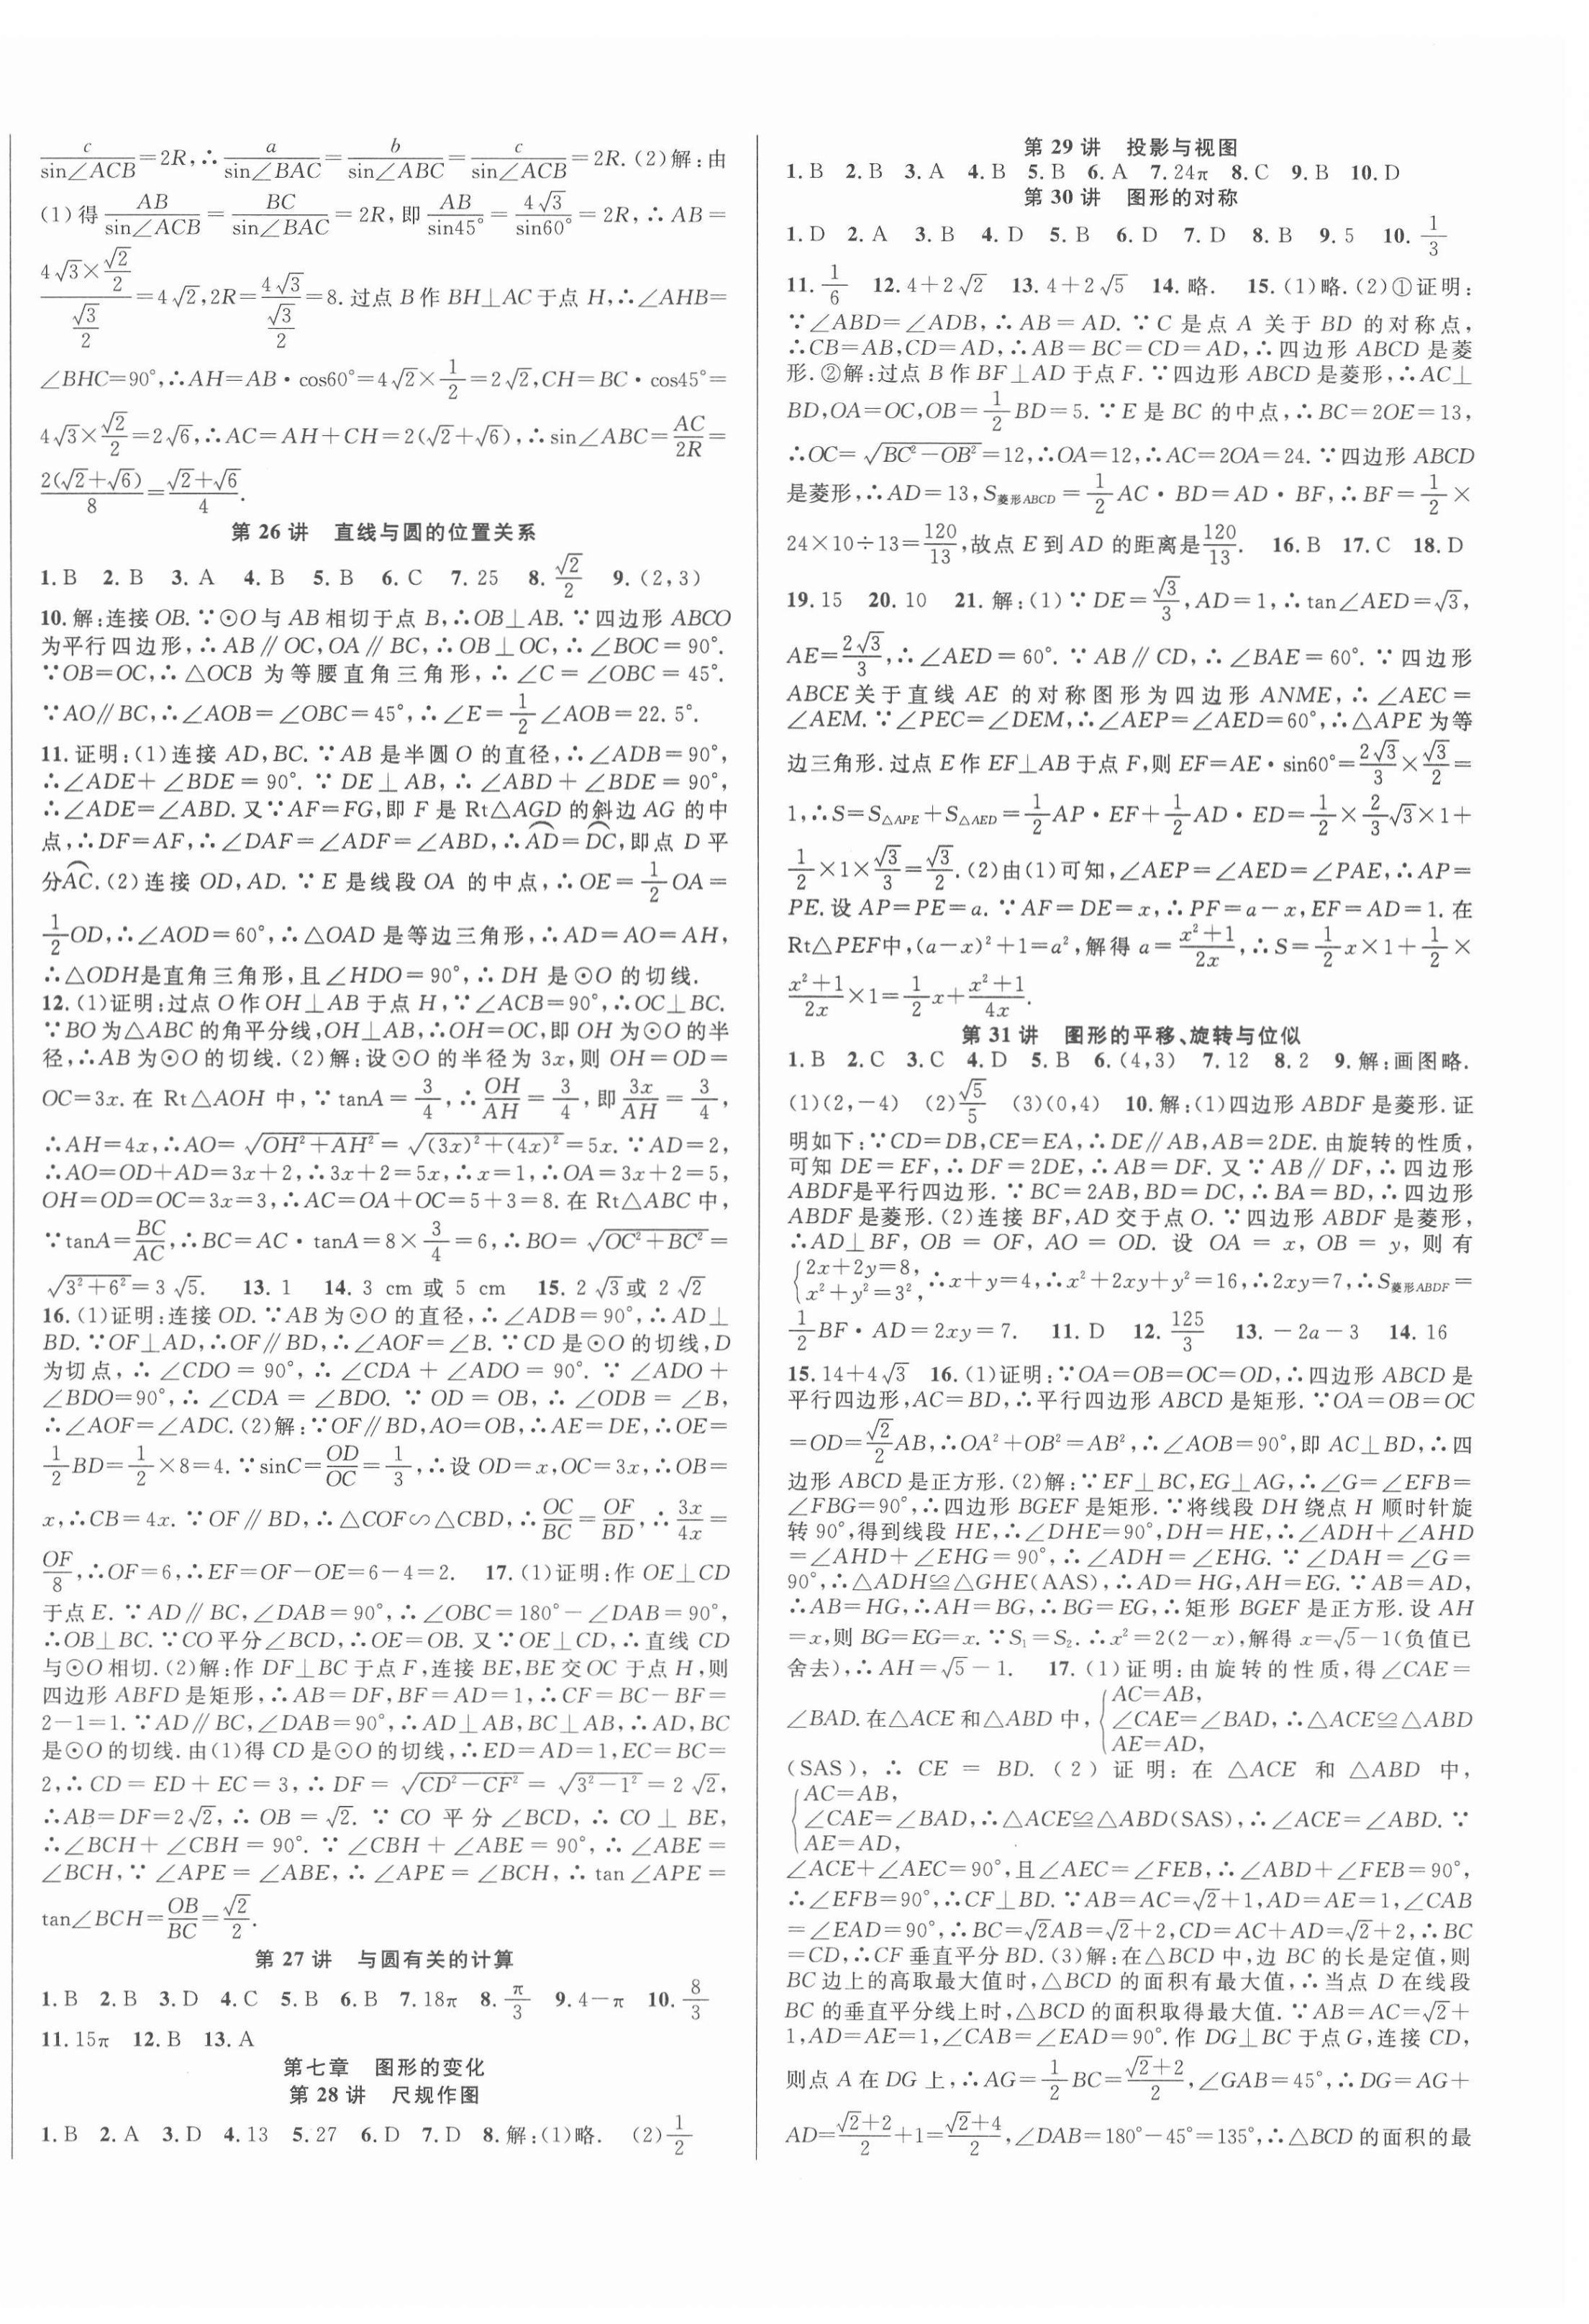 c/sin∠ACB=2R,∴a/sin∠BAC=b/sin∠ABC=c/sin∠ACB=2R.(2)解:由
(1)得AB/sin∠ACB=BC/sin∠BAC=2R,即AB/sin45°=4√3/sin60°=2R,∴AB=
(4√3×√2/2)/(√3/2)=4√2,2R=4√3/(√3/2)=8.过点B作BH⊥AC于点H,∴∠AHB=
∠BHC=90°,∴AH=AB·cos60°=4√2×1/2=2√2,CH=BC·cos45°=
4√3×√2/2=2√6,∴AC=AH+CH=2(√2+√6),∴sin∠ABC=AC/2R=
2(√2+√6)/8=(√2+√6)/4.
第26讲 直线与圆的位置关系
1.B 2.B 3.A 4.B 5.B 6.C 7.25 8.√2/2 9.(2,3)
10.解:连接OB.∵⊙O与AB相切于点B,∴OB⊥AB.∵四边形ABCO
为平行四边形,∴AB∥OC,OA∥BC,∴OB⊥OC,∴∠BOC=90°.
∵OB=OC,∴△OCB为等腰直角三角形,∴∠C=∠OBC=45°.
∵AO∥BC,∴∠AOB=∠OBC=45°,∴∠E=1/2∠AOB=22.5°.
11.证明:(1)连接AD,BC.∵AB是半圆O的直径,∴∠ADB=90°,
∴∠ADE+∠BDE=90°.∵DE⊥AB,∴∠ABD+∠BDE=90°,
∴∠ADE=∠ABD.又∵AF=FG,即F是Rt△AGD的斜边AG的中
点,∴DF=AF,∴∠DAF=∠ADF=∠ABD,∴⌒AD=⌒DC,即点D平
分⌒AC.(2)连接OD,AD.∵E是线段OA的中点,∴OE=1/2OA=
1/2OD,∴∠AOD=60°,∴△OAD是等边三角形,∴AD=AO=AH,
∴△ODH是直角三角形,且∠HDO=90°,∴DH是⊙O的切线.
12.(1)证明:过点O作OH⊥AB于点H,∵∠ACB=90°,∴OC⊥BC.
∵BO为△ABC的角平分线,OH⊥AB,∴OH=OC,即OH为⊙O的半
径,∴AB为⊙O的切线.(2)解:设⊙O的半径为3x,则OH=OD=
OC=3x.在Rt△AOH中,∵tanA=3/4,∴OH/AH=3/4,即3x/AH=3/4,
∴AH=4x,∴AO=√(OH²+AH²)=√((3x)²+(4x)²)=5x.∵AD=2,
∴AO=OD+AD=3x+2,∴3x+2=5x,∴x=1,∴OA=3x+2=5,
OH=OD=OC=3x=3,∴AC=OA+OC=5+3=8.在Rt△ABC中,
∵tanA=BC/AC,∴BC=AC·tanA=8×3/4=6,∴BO=√(OC²+BC²)=
√(3²+6²)=3√5. 13.1 14.3 cm或5 cm 15.2√3或2√2
16.(1)证明:连接OD.∵AB为⊙O的直径,∴∠ADB=90°,∴AD⊥
BD.∵OF⊥AD,∴OF∥BD,∴∠AOF=∠B.∵CD是⊙O的切线,D
为切点,∴∠CDO=90°,∴∠CDA+∠ADO=90°.∵∠ADO+
∠BDO=90°,∴∠CDA=∠BDO.∵OD=OB,∴∠ODB=∠B,
∴∠AOF=∠ADC.(2)解:∵OF∥BD,AO=OB,∴AE=DE,∴OE=
1/2BD=1/2×8=4.∵sinC=OD/OC=1/3,∴设OD=x,OC=3x,∴OB=
x,∴CB=4x.∵OF∥BD,∴△COF∽△CBD,∴OC/BC=OF/BD,∴3x/4x=
OF/8,∴OF=6,∴EF=OF-OE=6-4=2. 17.(1)证明:作OE⊥CD
于点E.∵AD∥BC,∠DAB=90°,∴∠OBC=180°-∠DAB=90°,
∴OB⊥BC.∵CO平分∠BCD,∴OE=OB.又∵OE⊥CD,∴直线CD
与⊙O相切.(2)解:作DF⊥BC于点F,连接BE,BE交OC于点H,则
四边形ABFD是矩形,∴AB=DF,BF=AD=1,∴CF=BC-BF=
2-1=1.∵AD∥BC,∠DAB=90°,∴AD⊥AB,BC⊥AB,∴AD,BC
是⊙O的切线.由(1)得CD是⊙O的切线,∴ED=AD=1,EC=BC=
2,∴CD=ED+EC=3,∴DF=√(CD²-CF²)=√(3²-1²)=2√2,
∴AB=DF=2√2,∴OB=√2.∵CO平分∠BCD,∴CO⊥BE,
∴∠BCH+∠CBH=90°.∵∠CBH+∠ABE=90°,∴∠ABE=
∠BCH,∵∠APE=∠ABE,∴∠APE=∠BCH,∴tan∠APE=
tan∠BCH=OB/BC=√2/2.
第27讲 与圆有关的计算
1.B 2.B 3.D 4.C 5.B 6.B 7.18π 8.π/3 9.4-π 10.8/3
11.15π 12.B 13.A
第七章 图形的变化
第28讲 尺规作图
1.B 2.A 3.D 4.13 5.27 6.D 7.D 8.解:(1)略. (2)1/2
第29讲 投影与视图
1.B 2.B 3.A 4.B 5.B 6.A 7.24π 8.C 9.B 10.D
第30讲 图形的对称
1.D 2.A 3.B 4.D 5.B 6.D 7.D 8.B 9.5 10.1/3
11.1/6 12.4+2√2 13.4+2√5 14.略. 15.(1)略.(2)①证明:
∵∠ABD=∠ADB,∴AB=AD.∵C是点A关于BD的对称点,
∴CB=AB,CD=AD,∴AB=BC=CD=AD,∴四边形ABCD是菱
形.②解:过点B作BF⊥AD于点F.∵四边形ABCD是菱形,∴AC⊥
BD,OA=OC,OB=1/2BD=5.∵E是BC的中点,∴BC=2OE=13,
∴OC=√(BC²-OB²)=12,∴OA=12,∴AC=2OA=24.∵四边形ABCD
是菱形,∴AD=13,S菱形ABCD=1/2AC·BD=AD·BF,∴BF=1/2×
24×10÷13=120/13,故点E到AD的距离是120/13. 16.B 17.C 18.D
19.15 20.10 21.解:(1)∵DE=√3/3,AD=1,∴tan∠AED=√3,
AE=2√3/3,∴∠AED=60°.∵AB∥CD,∴∠BAE=60°.∵四边形
ABCE关于直线AE的对称图形为四边形ANME,∴∠AEC=
∠AEM.∵∠PEC=∠DEM,∴∠AEP=∠AED=60°,∴△APE为等
边三角形.过点E作EF⊥AB于点F,则EF=AE·sin60°=2√3/3×√3/2=
1,∴S=S△APE+S△AED=1/2AP·EF+1/2AD·ED=1/2×2/3√3×1+
1/2×1×√3/3=√3/2.(2)由(1)可知,∠AEP=∠AED=∠PAE,∴AP=
PE.设AP=PE=a.∵AF=DE=x,∴PF=a-x,EF=AD=1.在
Rt△PEF中,(a-x)²+1=a²,解得a=(x²+1)/2x,∴S=1/2x×1+1/2×
(x²+1)/2x×1=1/2x+(x²+1)/4x.
第31讲 图形的平移、旋转与位似
1.B 2.C 3.C 4.D 5.B 6.(4,3) 7.12 8.2 9.解:画图略.
(1)(2,-4) (2)√5/5 (3)(0,4) 10.解:(1)四边形ABDF是菱形.证
明如下:∵CD=DB,CE=EA,∴DE∥AB,AB=2DE.由旋转的性质,
可知DE=EF,∴DF=2DE,∴AB=DF.又∵AB∥DF,∴四边形
ABDF是平行四边形.∵BC=2AB,BD=DC,∴BA=BD,∴四边形
ABDF是菱形.(2)连接BF,AD交于点O.∵四边形ABDF是菱形,
∴AD⊥BF,OB=OF,AO=OD.设OA=x,OB=y,则有
{2x+2y=8, x²+y²=3²,∴x+y=4,∴x²+2xy+y²=16,∴2xy=7,∴S菱形ABDF=
1/2BF·AD=2xy=7. 11.D 12.125/3 13.-2a-3 14.16
15.14+4√3 16.(1)证明:∵OA=OB=OC=OD,∴四边形ABCD是
平行四边形,AC=BD,∴平行四边形ABCD是矩形.∵OA=OB=OC
=OD=√2/2AB,∴OA²+OB²=AB²,∴∠AOB=90°,即AC⊥BD,∴四
边形ABCD是正方形.(2)解:∵EF⊥BC,EG⊥AG,∴∠G=∠EFB=
∠FBG=90°,∴四边形BGEF是矩形.∵将线段DH绕点H顺时针旋
转90°,得到线段HE,∴∠DHE=90°,DH=HE,∴∠ADH+∠AHD
=∠AHD+∠EHG=90°,∴∠ADH=∠EHG.∵∠DAH=∠G=
90°,∴△ADH≌△GHE(AAS),∴AD=HG,AH=EG.∵AB=AD,
∴AB=HG,∴AH=BG,∴BG=EG,∴矩形BGEF是正方形.设AH
=x,则BG=EG=x.∵S₁=S₂.∴x²=2(2-x),解得x=√5-1(负值已
舍去),∴AH=√5-1. 17.(1)证明:由旋转的性质,得∠CAE=
∠BAD.在△ACE和△ABD中,{AC=AB, ∠CAE=∠BAD, AE=AD,∴△ACE≌△ABD
(SAS),∴CE=BD.(2)证明:在△ACE和△ABD中,
{AC=AB, ∠CAE=∠BAD, AE=AD,∴△ACE≌△ABD(SAS),∴∠ACE=∠ABD.∵
∠ACE+∠AEC=90°,且∠AEC=∠FEB,∴∠ABD+∠FEB=90°,
∴∠EFB=90°,∴CF⊥BD.∵AB=AC=√2+1,AD=AE=1,∠CAB
=∠EAD=90°,∴BC=√2AB=√2+2,CD=AC+AD=√2+2,∴BC
=CD,∴CF垂直平分BD.(3)解:在△BCD中,边BC的长是定值,则
BC边上的高取最大值时,△BCD的面积有最大值,∴当点D在线段
BC的垂直平分线上时,△BCD的面积取得最大值.∵AB=AC=√2+
1,AD=AE=1,∠CAB=∠EAD=90°.作DG⊥BC于点G,连接CD,
则点A在DG上,∴AG=1/2BC=(√2+2)/2,∠GAB=45°,∴DG=AG+
AD=(√2+2)/2+1=(√2+4)/2,∠DAB=180°-45°=135°,∴△BCD的面积的最